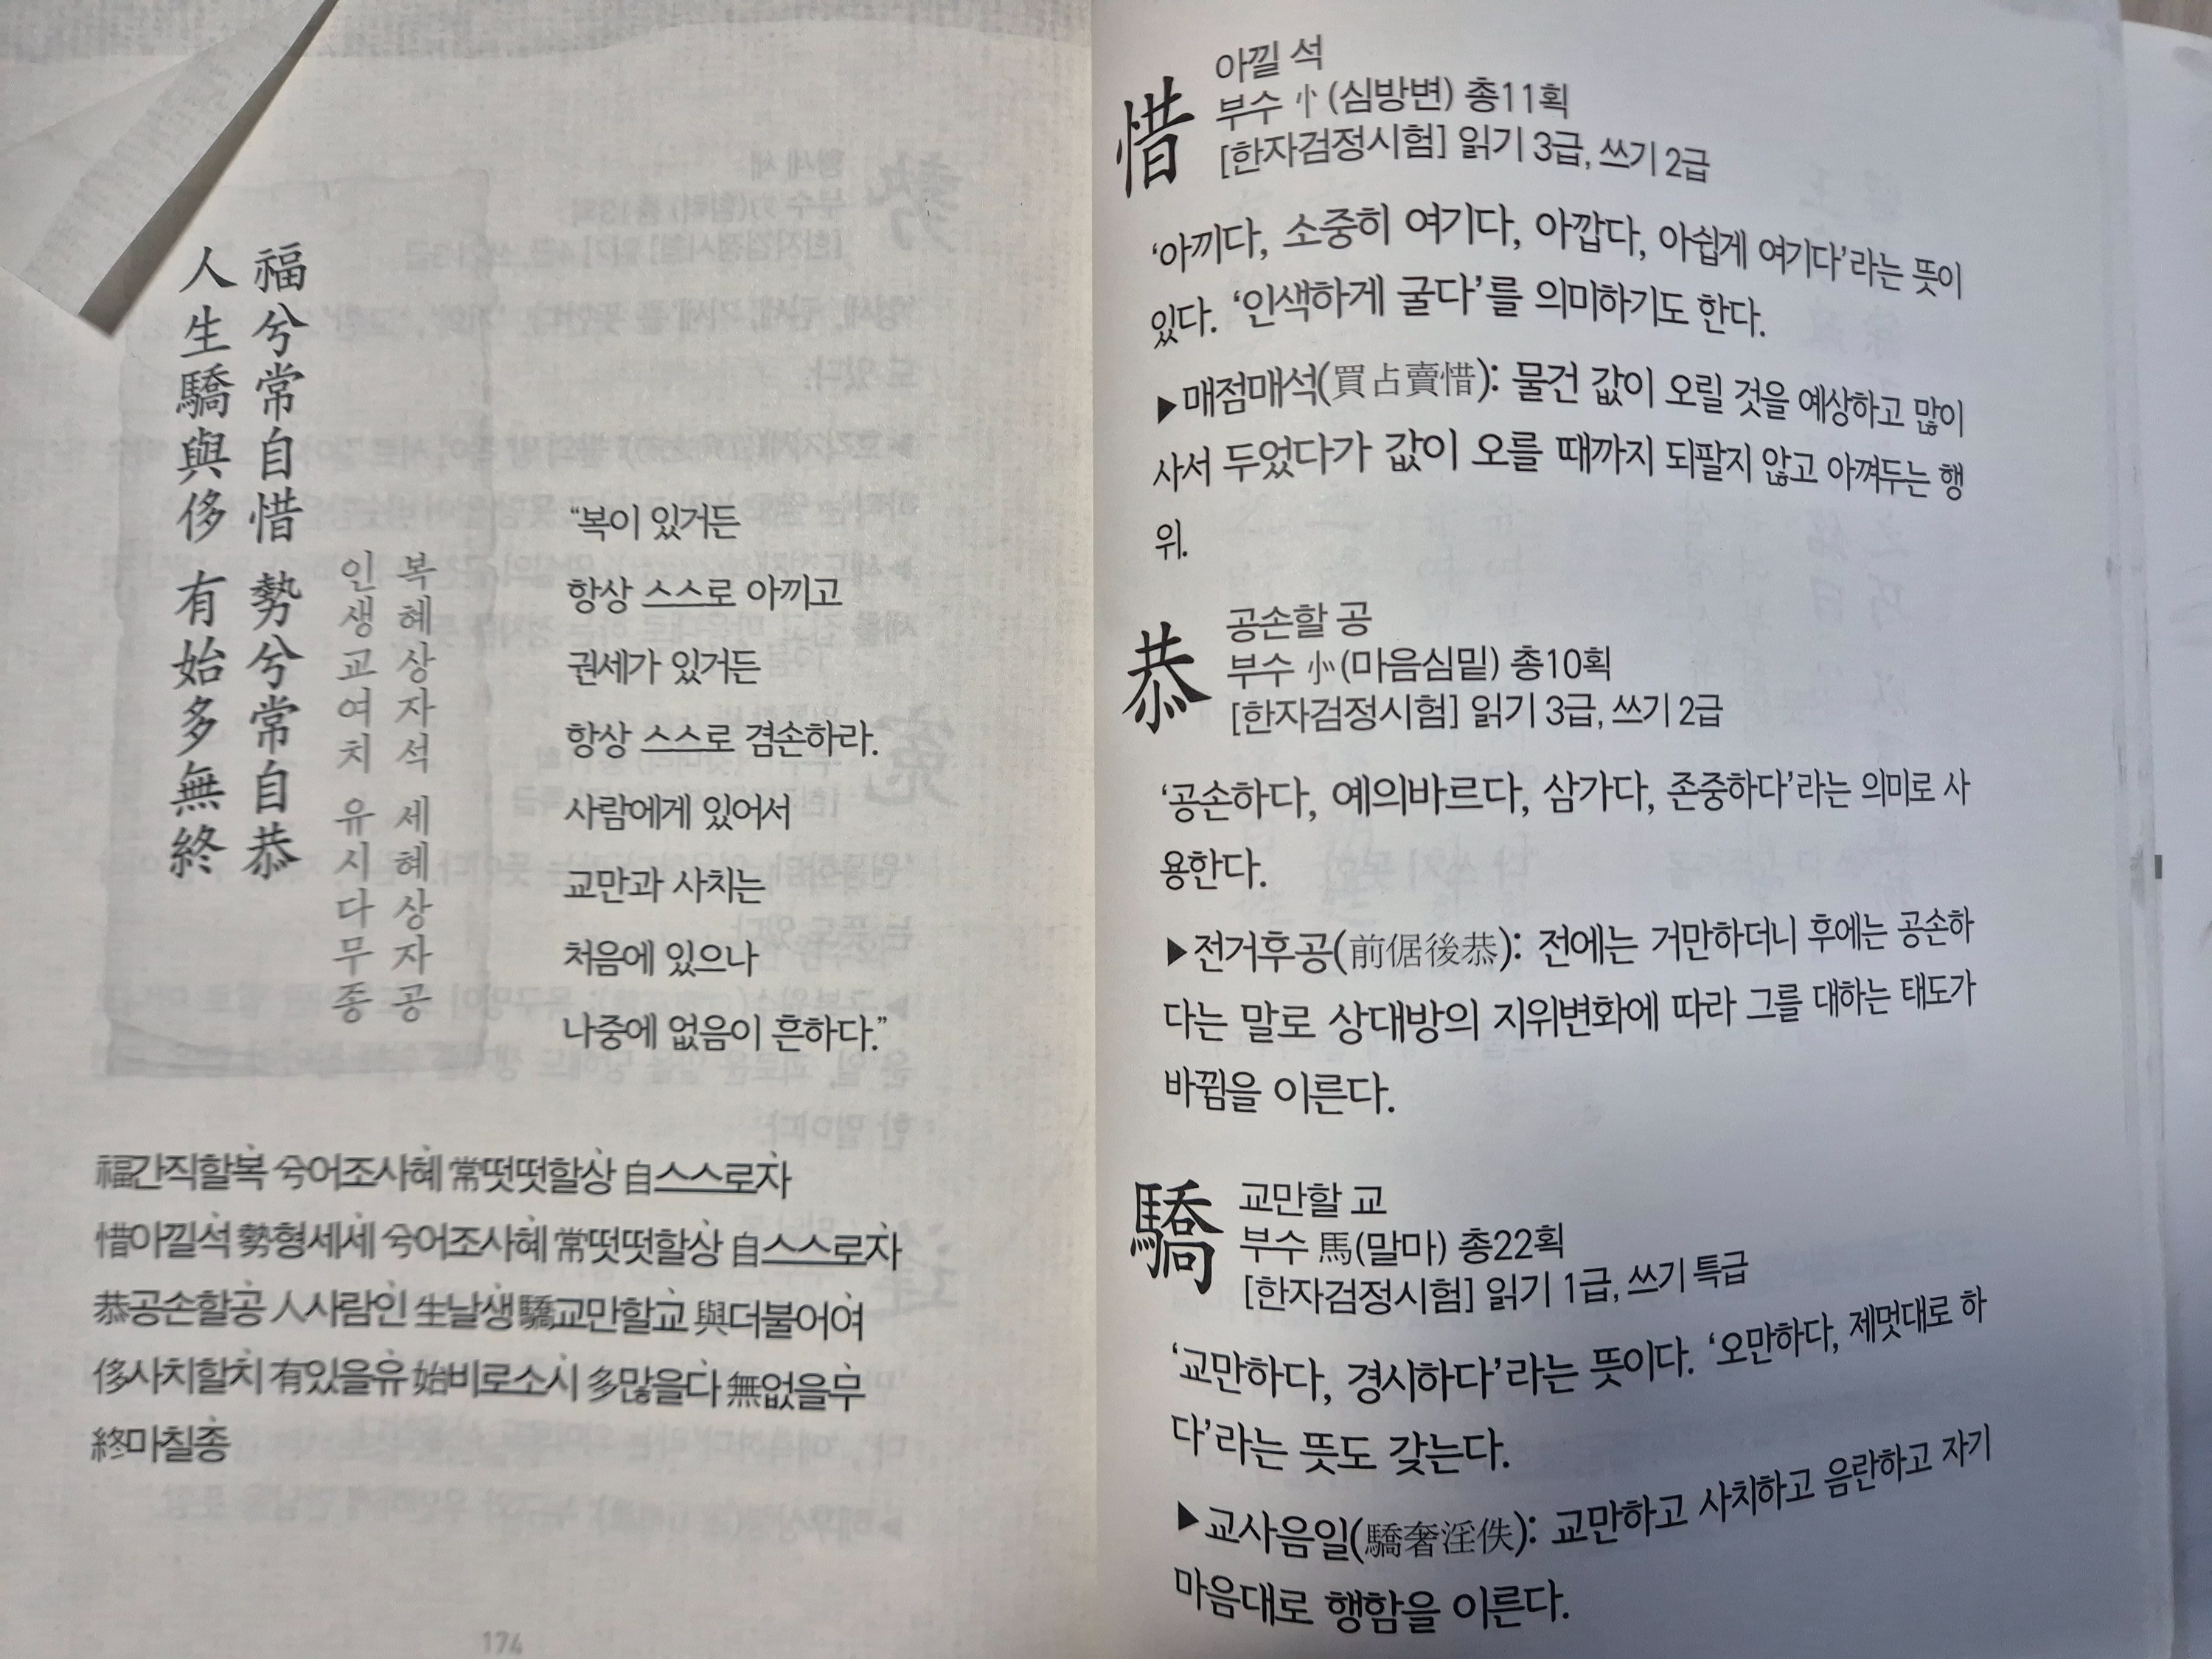 福兮常自惜 勢兮常自恭
人生驕與侈 有始多無終
복혜상자석 세혜상자공
인생교여치 유시다무종
“복이 있거든
항상 스스로 아끼고
권세가 있거든
항상 스스로 겸손하라.
사람에게 있어서
교만과 사치는
처음에 있으나
나중에 없음이 흔하다.”
福간직할복 兮어조사혜 常떳떳할상 自스스로자
惜아낄석 勢형세세 兮어조사혜 常떳떳할상 自스스로자
恭공손할공 人사람인 生날생 驕교만할교 與더불어여
侈사치할치 有있을유 始비로소시 多많을다 無없을무
終마칠종
174
惜 아낄 석
부수 忄(심방변) 총11획
[한자검정시험] 읽기 3급, 쓰기 2급
‘아끼다, 소중히 여기다, 아깝다, 아쉽게 여기다’라는 뜻이
있다. ‘인색하게 굴다’를 의미하기도 한다.
▶매점매석(買占賣惜): 물건 값이 오릴 것을 예상하고 많이
사서 두었다가 값이 오를 때까지 되팔지 않고 아껴두는 행
위.
恭 공손할 공
부수 㣺(마음심밑) 총10획
[한자검정시험] 읽기 3급, 쓰기 2급
‘공손하다, 예의바르다, 삼가다, 존중하다’라는 의미로 사
용한다.
▶전거후공(前倨後恭): 전에는 거만하더니 후에는 공손하
다는 말로 상대방의 지위변화에 따라 그를 대하는 태도가
바뀜을 이른다.
驕 교만할 교
부수 馬(말마) 총22획
[한자검정시험] 읽기 1급, 쓰기 특급
‘교만하다, 경시하다’라는 뜻이다. ‘오만하다, 제멋대로 하
다’라는 뜻도 갖는다.
▶교사음일(驕奢淫佚): 교만하고 사치하고 음란하고 자기
마음대로 행함을 이른다.